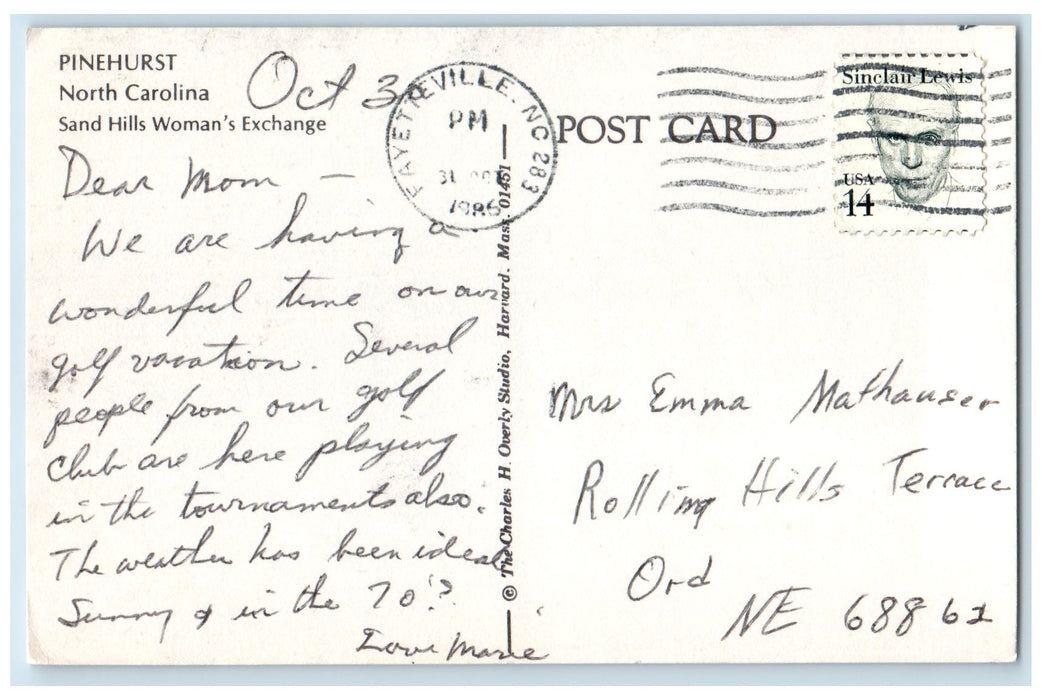 PINEHURST
North Carolina
Sand Hills Woman's Exchange
Oct 30
Dear Mom —
We are having a
wonderful time on our
golf vacation. Several
people from our golf
club are here playing
in the tournaments also.
The weather has been ideal
Sunny & in the 70's.
Love Marie
FAYETTEVILLE, NC 283
PM
31
1986
© The Charles H. Overly Studio, Harvard. Mass. 01451
POST CARD
Sinclair Lewis
USA
14
Mrs Emma Mathauser
Rolling Hills Terrace
Ord
NE 68862